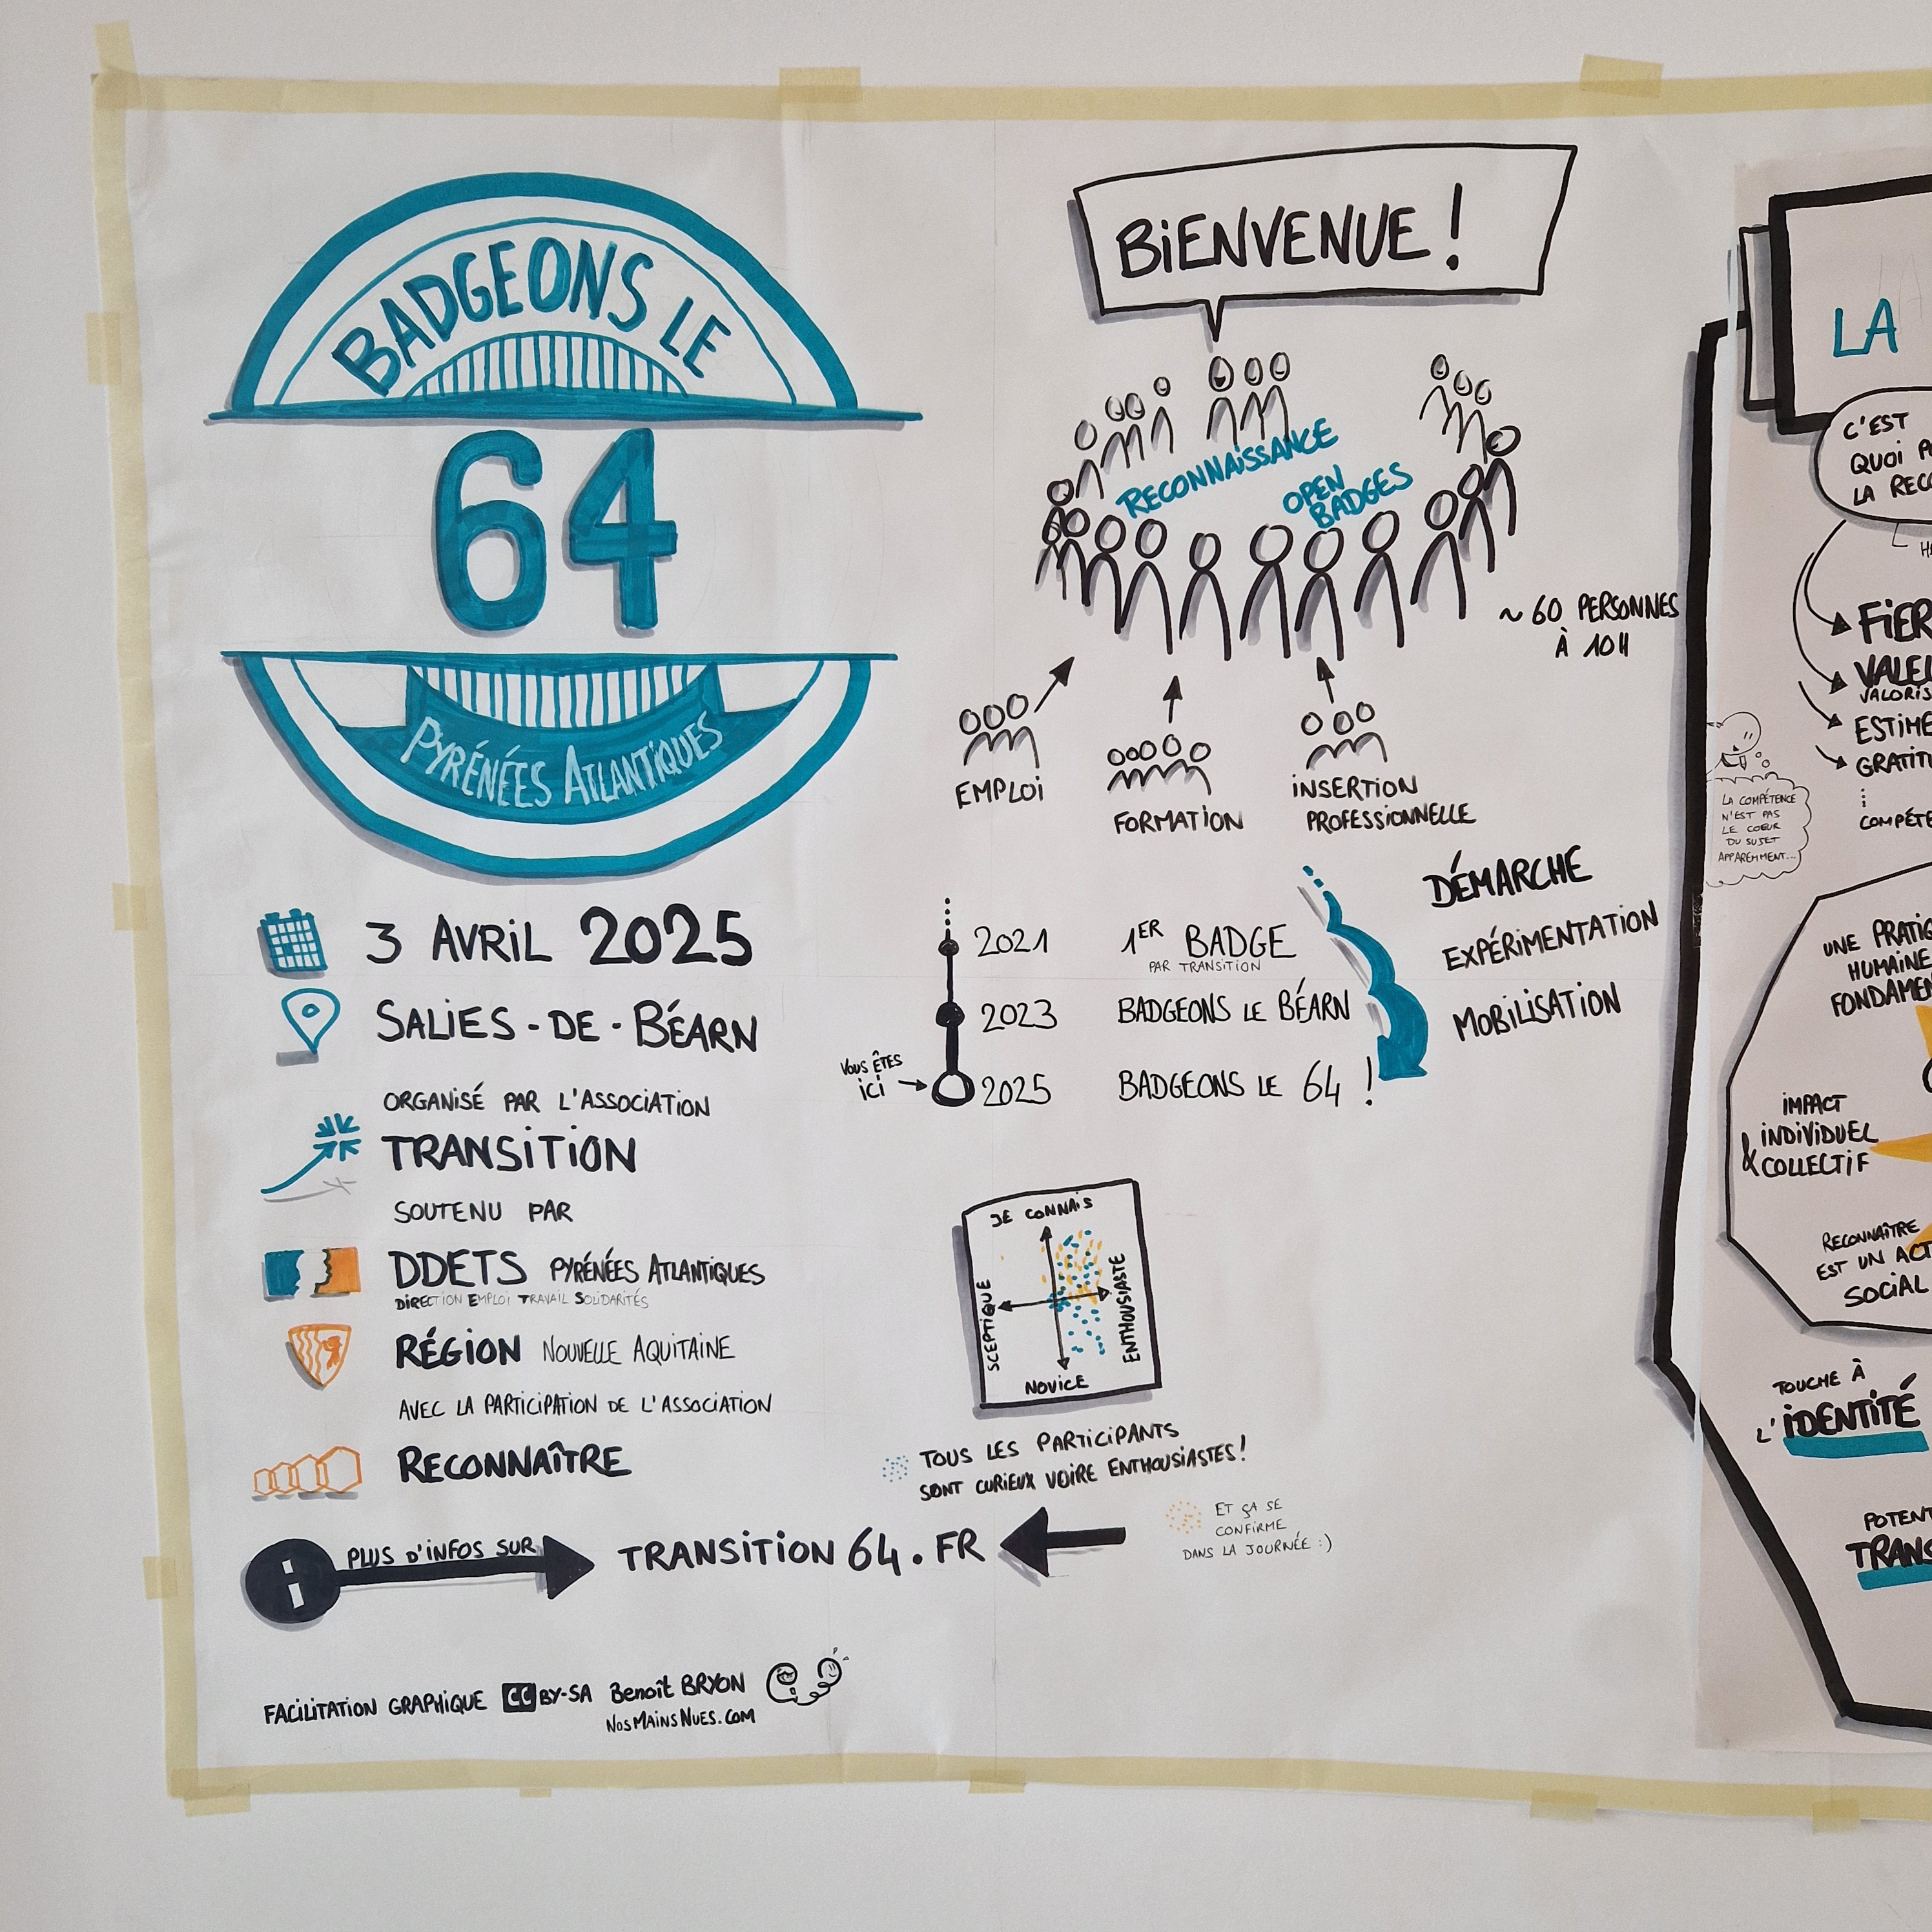 BADGEONS LE
64
PYRÉNÉES ATLANTIQUES
3 AVRIL 2025
SALIES-DE-BÉARN
ORGANISÉ PAR L'ASSOCIATION
TRANSITION
SOUTENU PAR
DDETS PYRÉNÉES ATLANTIQUES
DIRECTION EMPLOI TRAVAIL SOLIDARITÉS
RÉGION NOUVELLE AQUITAINE
AVEC LA PARTICIPATION DE L'ASSOCIATION
RECONNAÎTRE
i PLUS D'INFOS SUR
TRANSITION64.FR
FACILITATION GRAPHIQUE CC BY-SA Benoît BRYON
NOSMAINSNUES.COM
BIENVENUE !
RECONNAISSANCE
OPEN
BADGES
~ 60 PERSONNES
À 10H
EMPLOI
FORMATION
INSERTION
PROFESSIONNELLE
2021 1ER BADGE
PAR TRANSITION
2023 BADGEONS LE BÉARN
VOUS ÊTES
ICI
2025 BADGEONS LE 64 !
DÉMARCHE
EXPÉRIMENTATION
MOBILISATION
JE CONNAIS
SCEPTIQUE
ENTHOUSIASTE
NOVICE
TOUS LES PARTICIPANTS
SONT CURIEUX VOIRE ENTHOUSIASTES !
ET ÇA SE
CONFIRME
DANS LA JOURNÉE :)
LA
C'EST
QUOI
LA
LA COMPÉTENCE
N'EST PAS
LE COEUR
DU SUJET
APPAREMMENT...
UNE
HUMAINE
IMPACT
INDIVIDUEL
& COLLECTIF
RECONNAÎTRE
EST UN
SOCIAL
TOUCHE À
L'IDENTITÉ